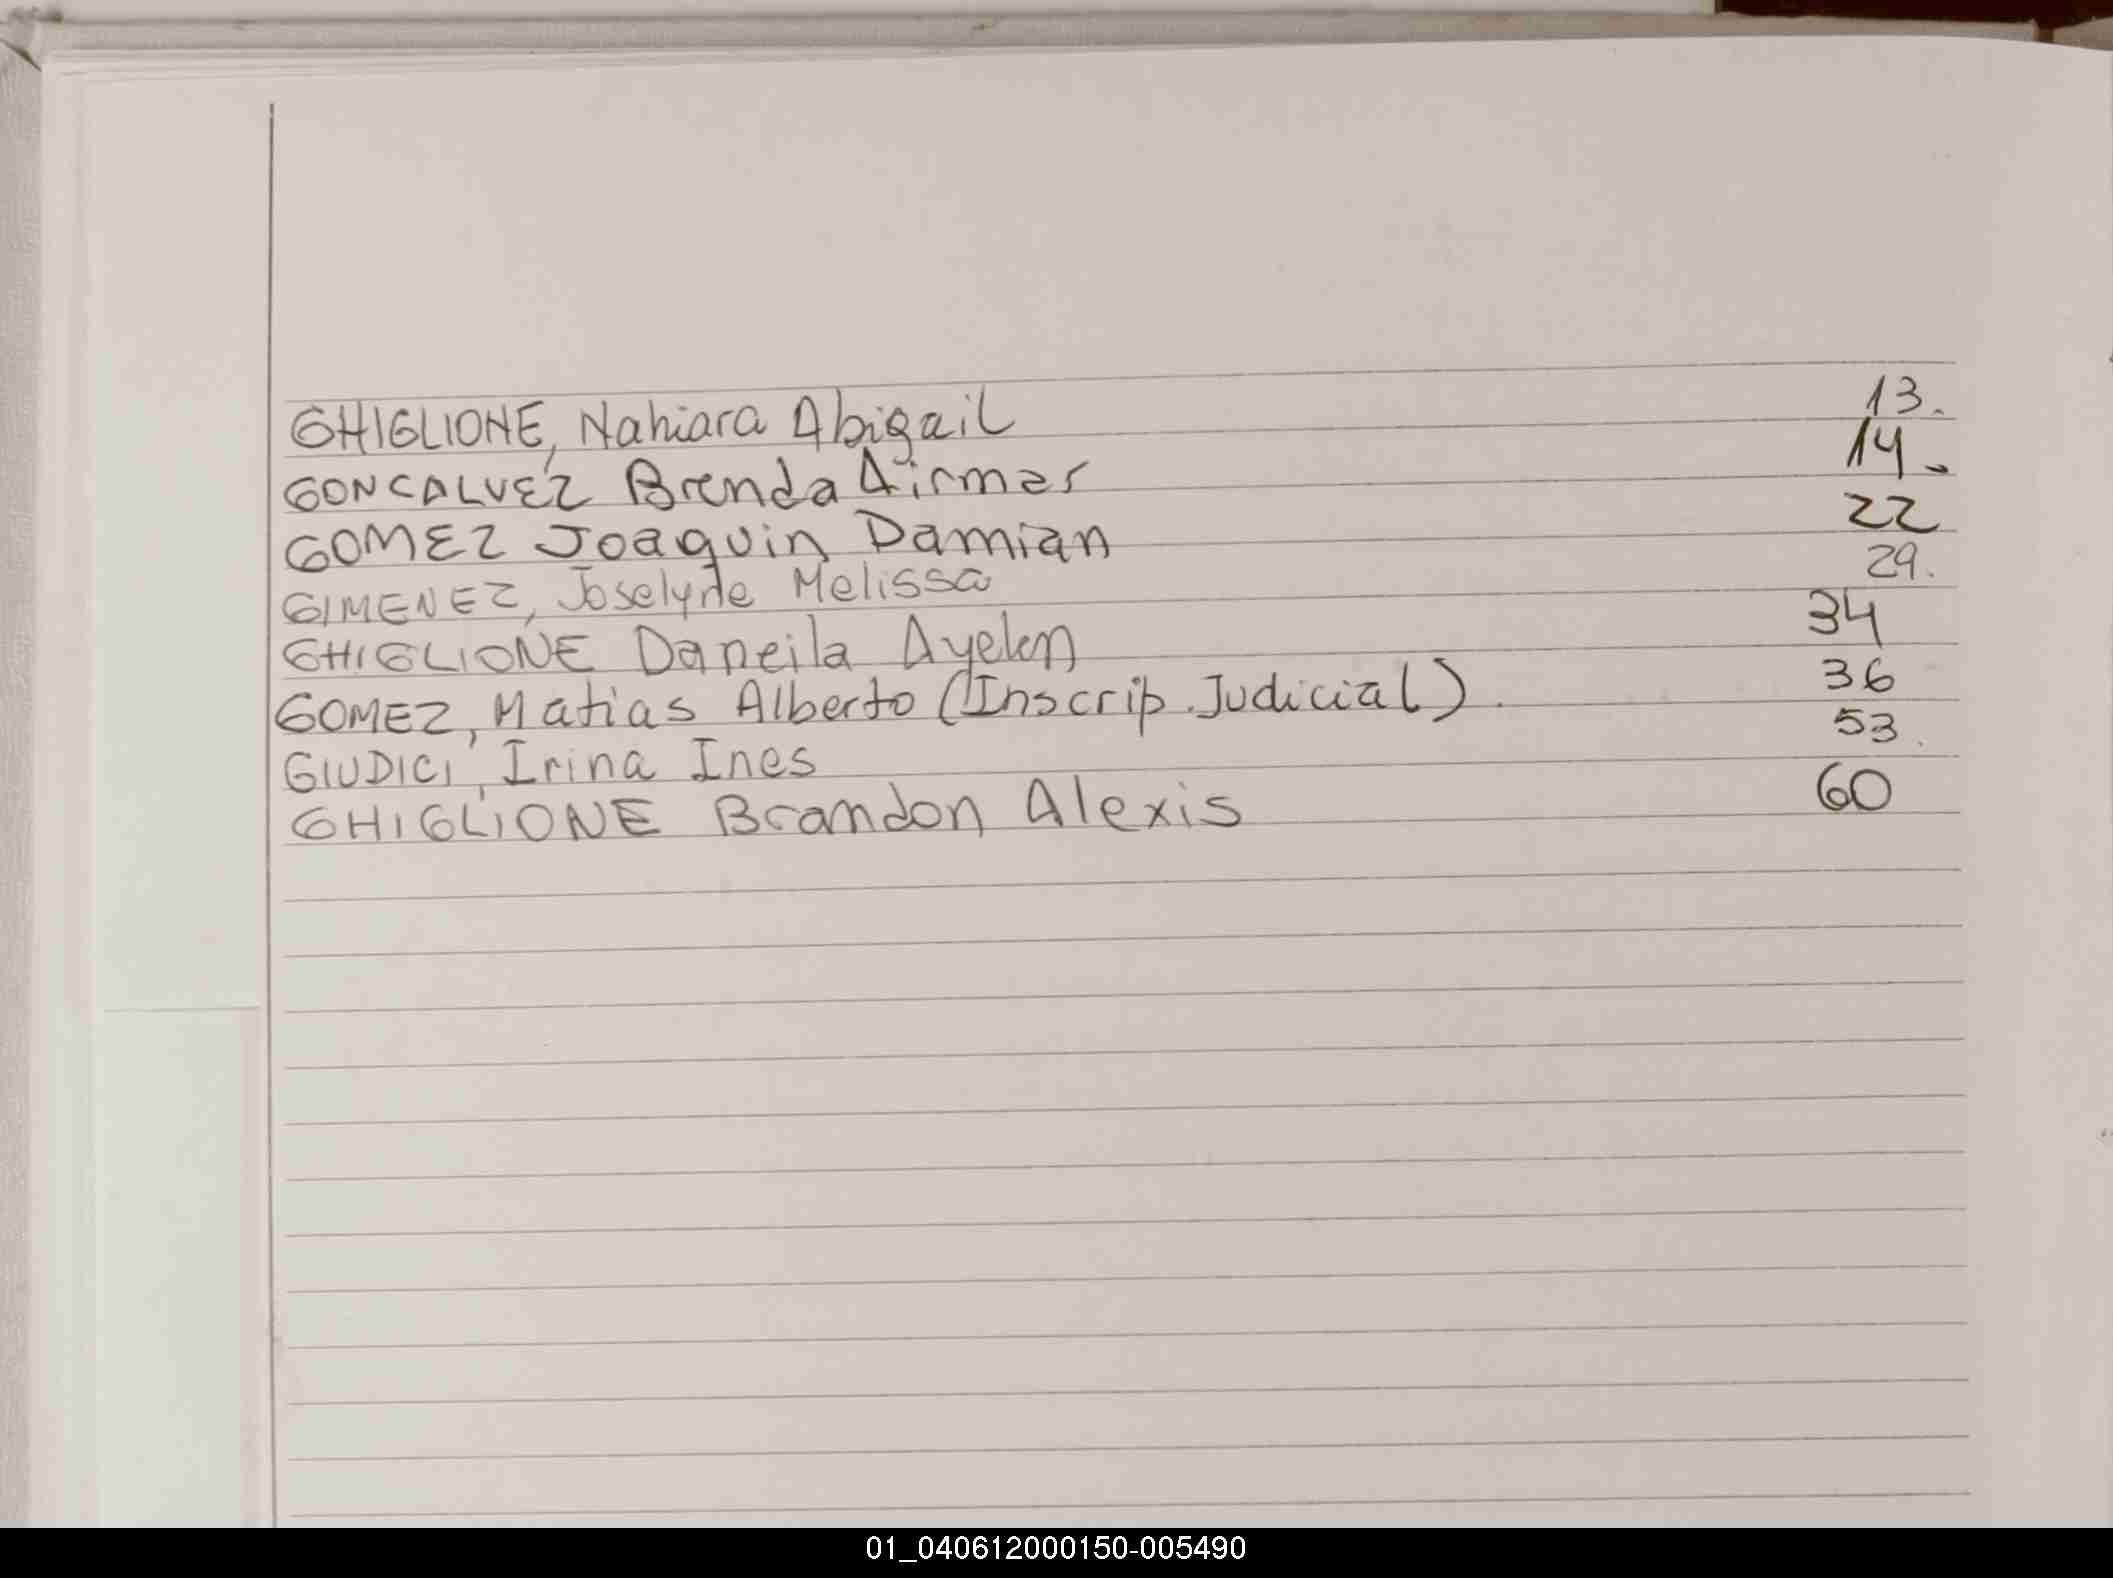 GHIGLIONE, Nahiara Abigail 13.
GONCALVEZ Brenda Airmar 14.
GOMEZ Joaquin Damian 22
GIMENEZ, Joselyne Melissa 29.
GHIGLIONE Daneila Ayelen 34
GOMEZ, Matias Alberto (Inscrip. Judicial). 36
GIUDICI, Irina Ines 53.
GHIGLIONE Brandon Alexis 60
01_040612000150-005490